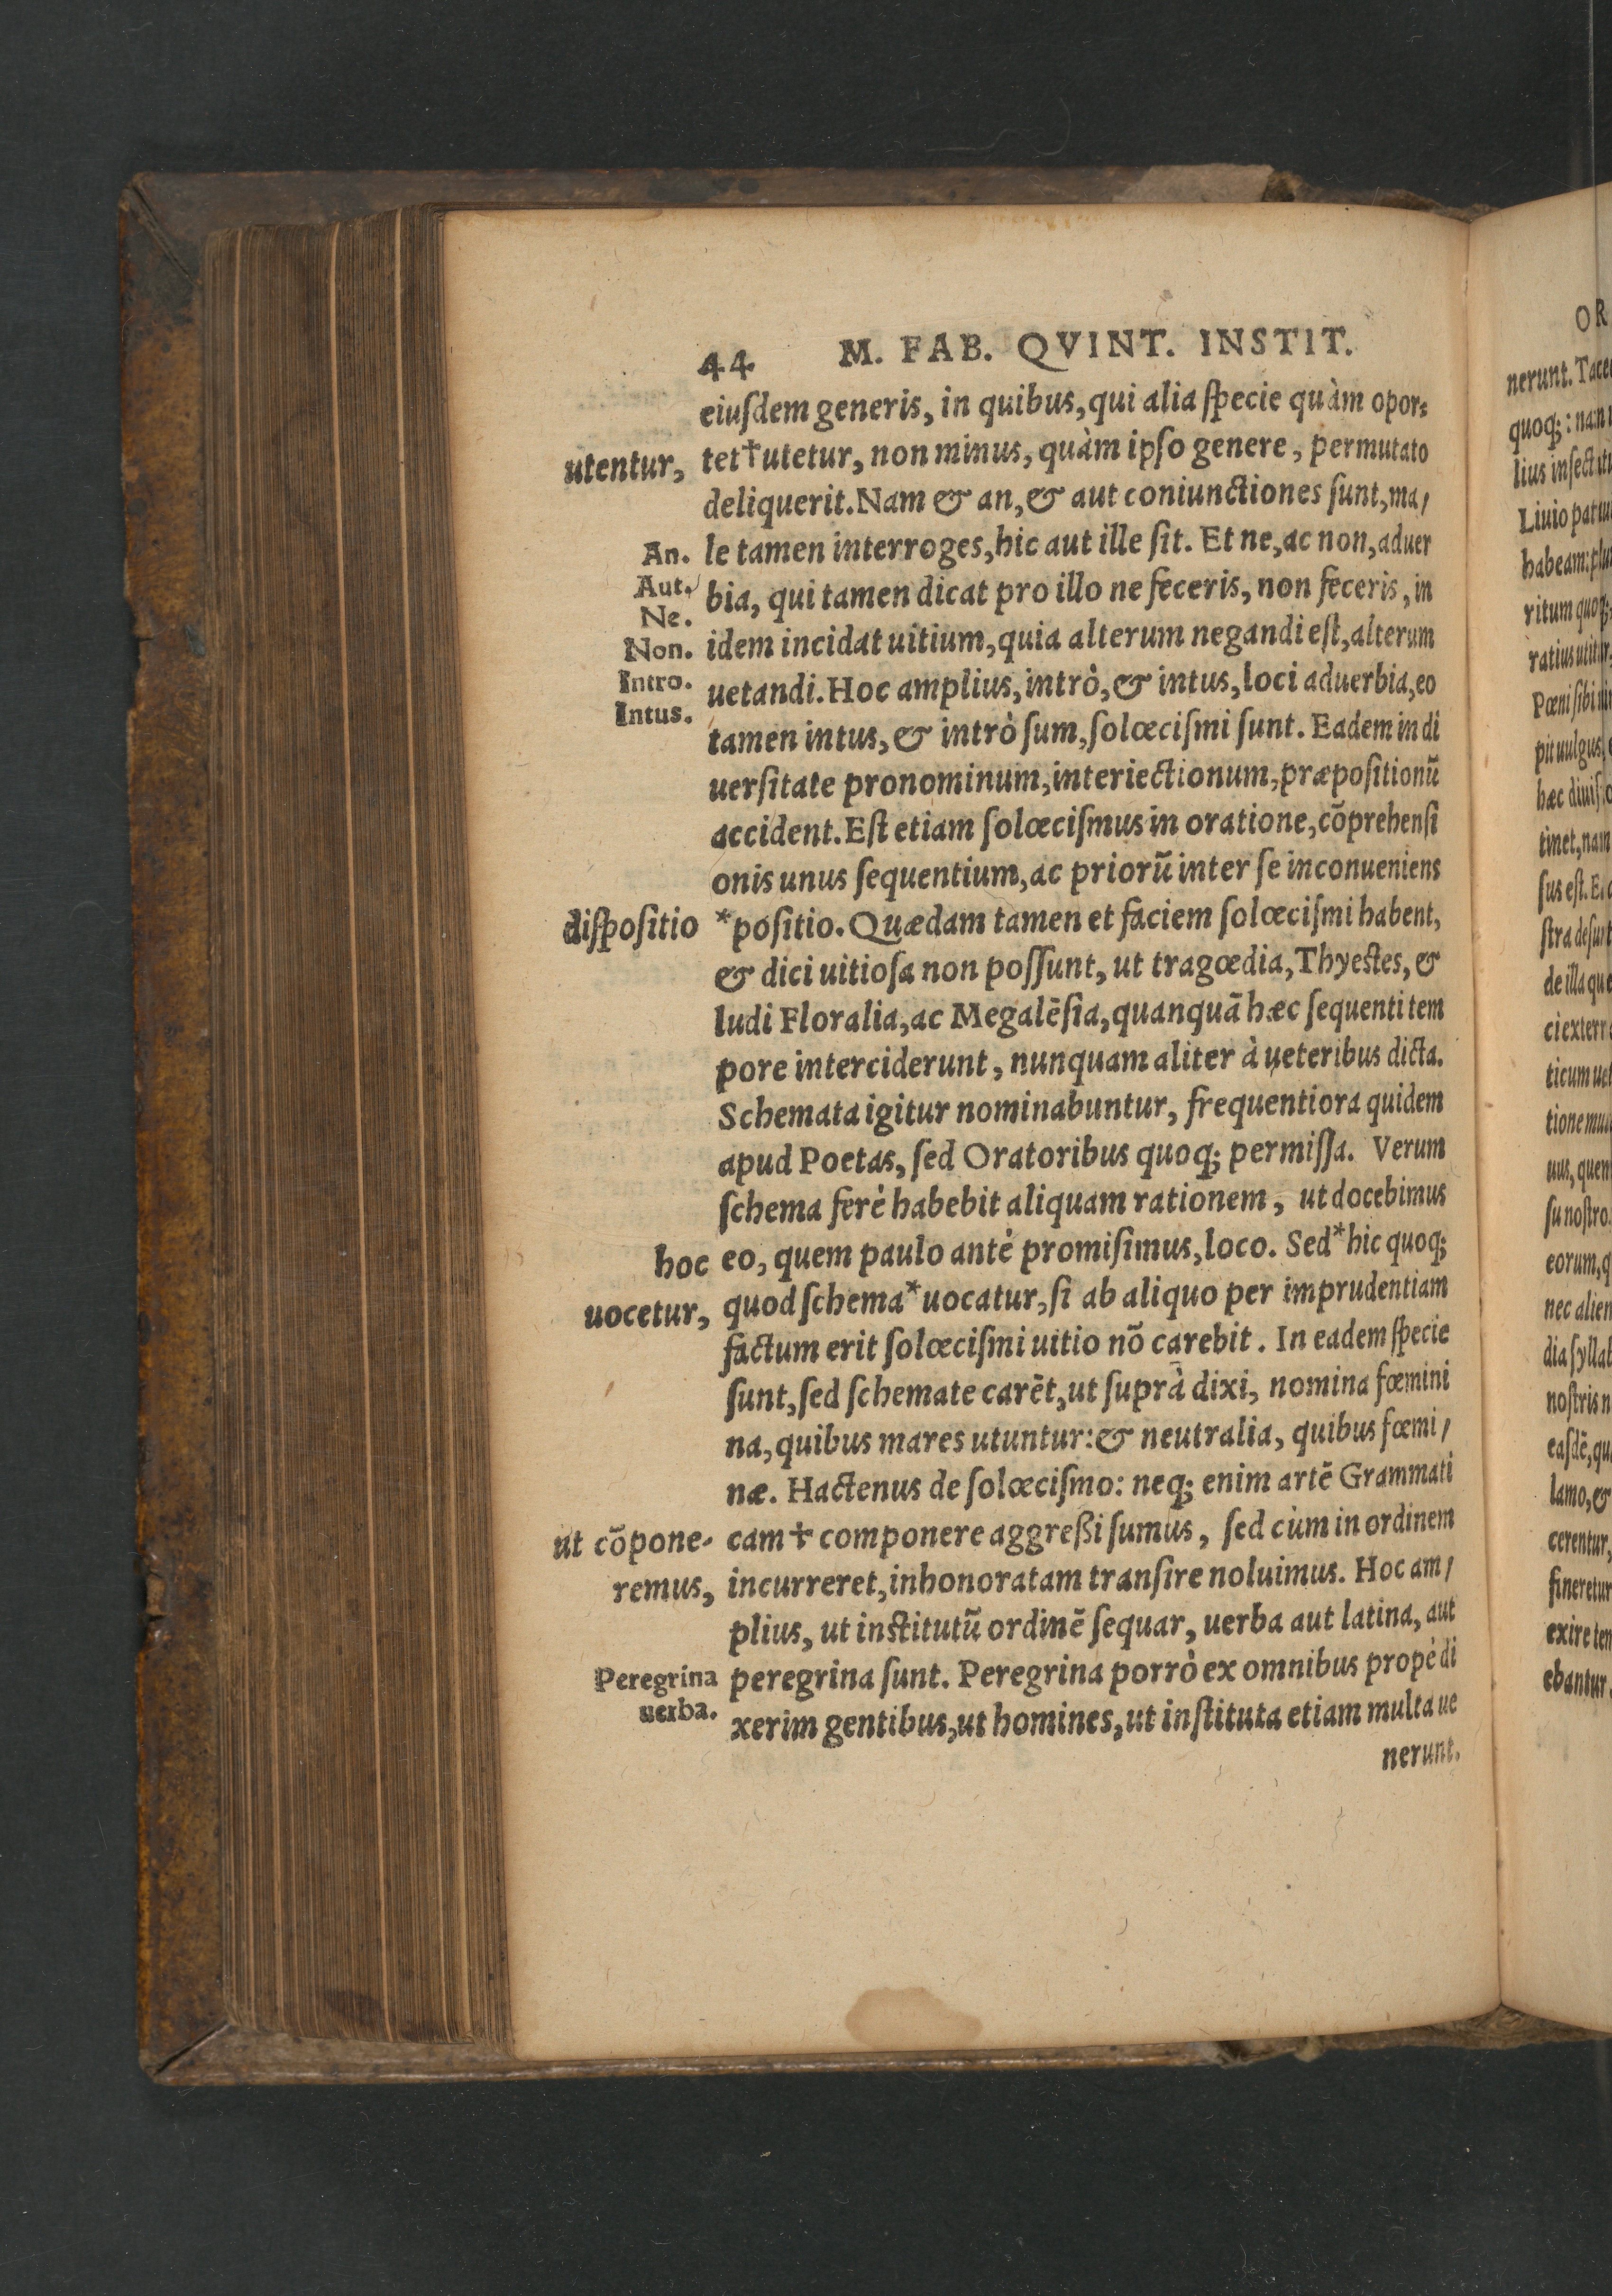 44 M. FAB. QVINT. INSTIT.
eiuſdem generis, in quibus, qui alia ſpecie quàm opor⸗
utentur, tet†utetur, non minus, quàm ipſo genere, permutato
deliquerit. Nam & an, & aut coniunctiones ſunt, ma/
An. le tamen interroges, hic aut ille ſit. Et ne, ac non, aduer
Aut. bia, qui tamen dicat pro illo ne feceris, non feceris, in
Ne.
Non. idem incidat uitium, quia alterum negandi eſt, alterum
Intro. uetandi. Hoc amplius, intrò, & intus, loci aduerbia, eo
Intus.
tamen intus, & intrò ſum, ſolœciſmi ſunt. Eadem in di
uerſitate pronominum, interiectionum, præpoſitionũ
accident. Eſt etiam ſolœciſmus in oratione, cõprehenſi
onis unus ſequentium, ac priorũ inter ſe inconueniens
diſpoſitio *poſitio. Quædam tamen et faciem ſolœciſmi habent,
& dici uitioſa non poſſunt, ut tragœdia, Thyeſtes, &
ludi Floralia, ac Megalẽſia, quanquã hæc ſequenti tem
pore interciderunt, nunquam aliter à ueteribus dicta.
Schemata igitur nominabuntur, frequentiora quidem
apud Poetas, ſed Oratoribus quoq; permiſſa. Verum
ſchema ferè habebit aliquam rationem, ut docebimus
hoc eo, quem paulo antè promiſimus, loco. Sed*hic quoq;
uocetur, quod ſchema*uocatur, ſi ab aliquo per imprudentiam
factum erit ſolœciſmi uitio nõ carebit. In eadem ſpecie
ſunt, ſed ſchemate carẽt, ut ſuprà dixi, nomina fœmini
na, quibus mares utuntur: & neutralia, quibus fœmi/
næ. Hactenus de ſolœciſmo: neq; enim artẽ Grammati
ut cõpone⸗ cam † componere aggreßi ſumus, ſed cùm in ordinem
remus, incurreret, inhonoratam tranſire noluimus. Hoc am/
plius, ut inſtitutũ ordinẽ ſequar, uerba aut latina, aut
Peregrina peregrina ſunt. Peregrina porrò ex omnibus propè di
uerba. xerim gentibus, ut homines, ut inſtituta etiam multa ue
nerunt.
OR
nerunt. Tace
quoq; : nam
Liuio
habeam:
ritum quoq;
Pœni ſibi
pit uulgus
hæc
tinet, nam
ſus eſt.
de illa que
ticum
uus, quem
ſu noſtro.
eorum, q
nec alien
dia ſyllab
noſtris n
eaſdẽ, qu
lamo, &
cerentur,
fineretur
exire ten
ebantur.